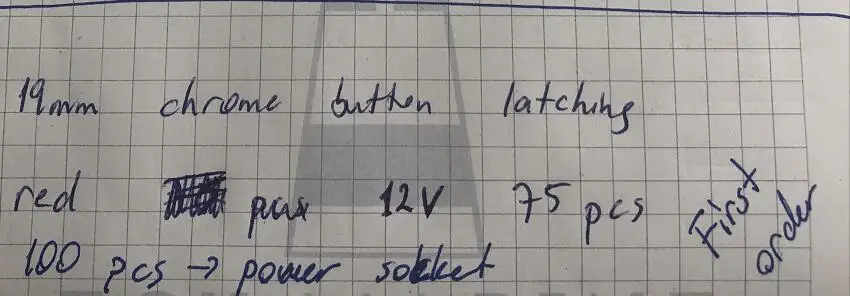 19mm chrome button latching
red 12V 75 pcs
100 pcs → power sokket
First
order